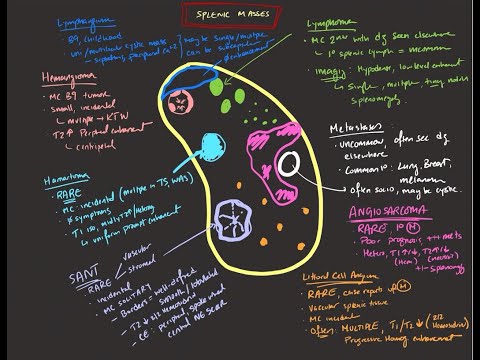 SPLENIC MASSES
Lymphangioma
• B9, childhood
• uni/multilocular cystic mass
- septations, peripheral Ca+2
may be single/multiple
can be subcapsular
Ø enhancement
Hemangioma
• MC B9 tumour
• small, incidental
↳ multiple → KTW
• T2↑ Peripheral enhancement
↳ centripetal
Hamartoma
• RARE
• MC incidental (multiple in TS, WAS)
• Ø symptoms
• T1 iso, mildly T2↑/Heterog
↳ uniform prompt enhancement
SANT
vascular
stromal
• RARE
• incidental
• MC SOLITARY
• Borders = well-defined
smooth/lobulated
• T2↓ 2/2 Hemosiderin
• CE: peripheral, spoke wheel
central NE SCAR
Lymphoma
• MC 2ndary with dz seen elsewhere
↳ 1° splenic lymph = uncommon
• imaging: Hypodense, low level enhancement
↳ single, multiple, tiny nodules
splenomegaly.
Metastases
• uncommon, often see dz
elsewhere
• Common 1°: Lung, Breast,
melanoma
• often solid, may be cystic.
ANGIOSARCOMA
• RARE, 1° M
• Poor prognosis, ++ mets
• Hetero, T1↑/↓ T2↑/↓
(Hem) (necrosis)
+/- splenomeg
Littoral Cell Angioma
• RARE, case reports of M
• Vascular splenic tissue
• MC incident
• Often: MULTIPLE, T1/T2↓ (2/2 Hemosiderin)
Progressive Homog enhancement